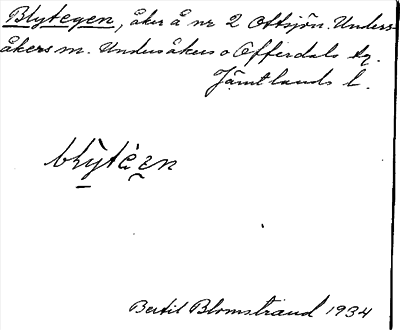 Blytegen, åker å nr 2 Ottsjön. Unders-
åkers m. Undersåkers o Offerdals tg.
Jämtlands l.
Bertil Blomstrand 1934